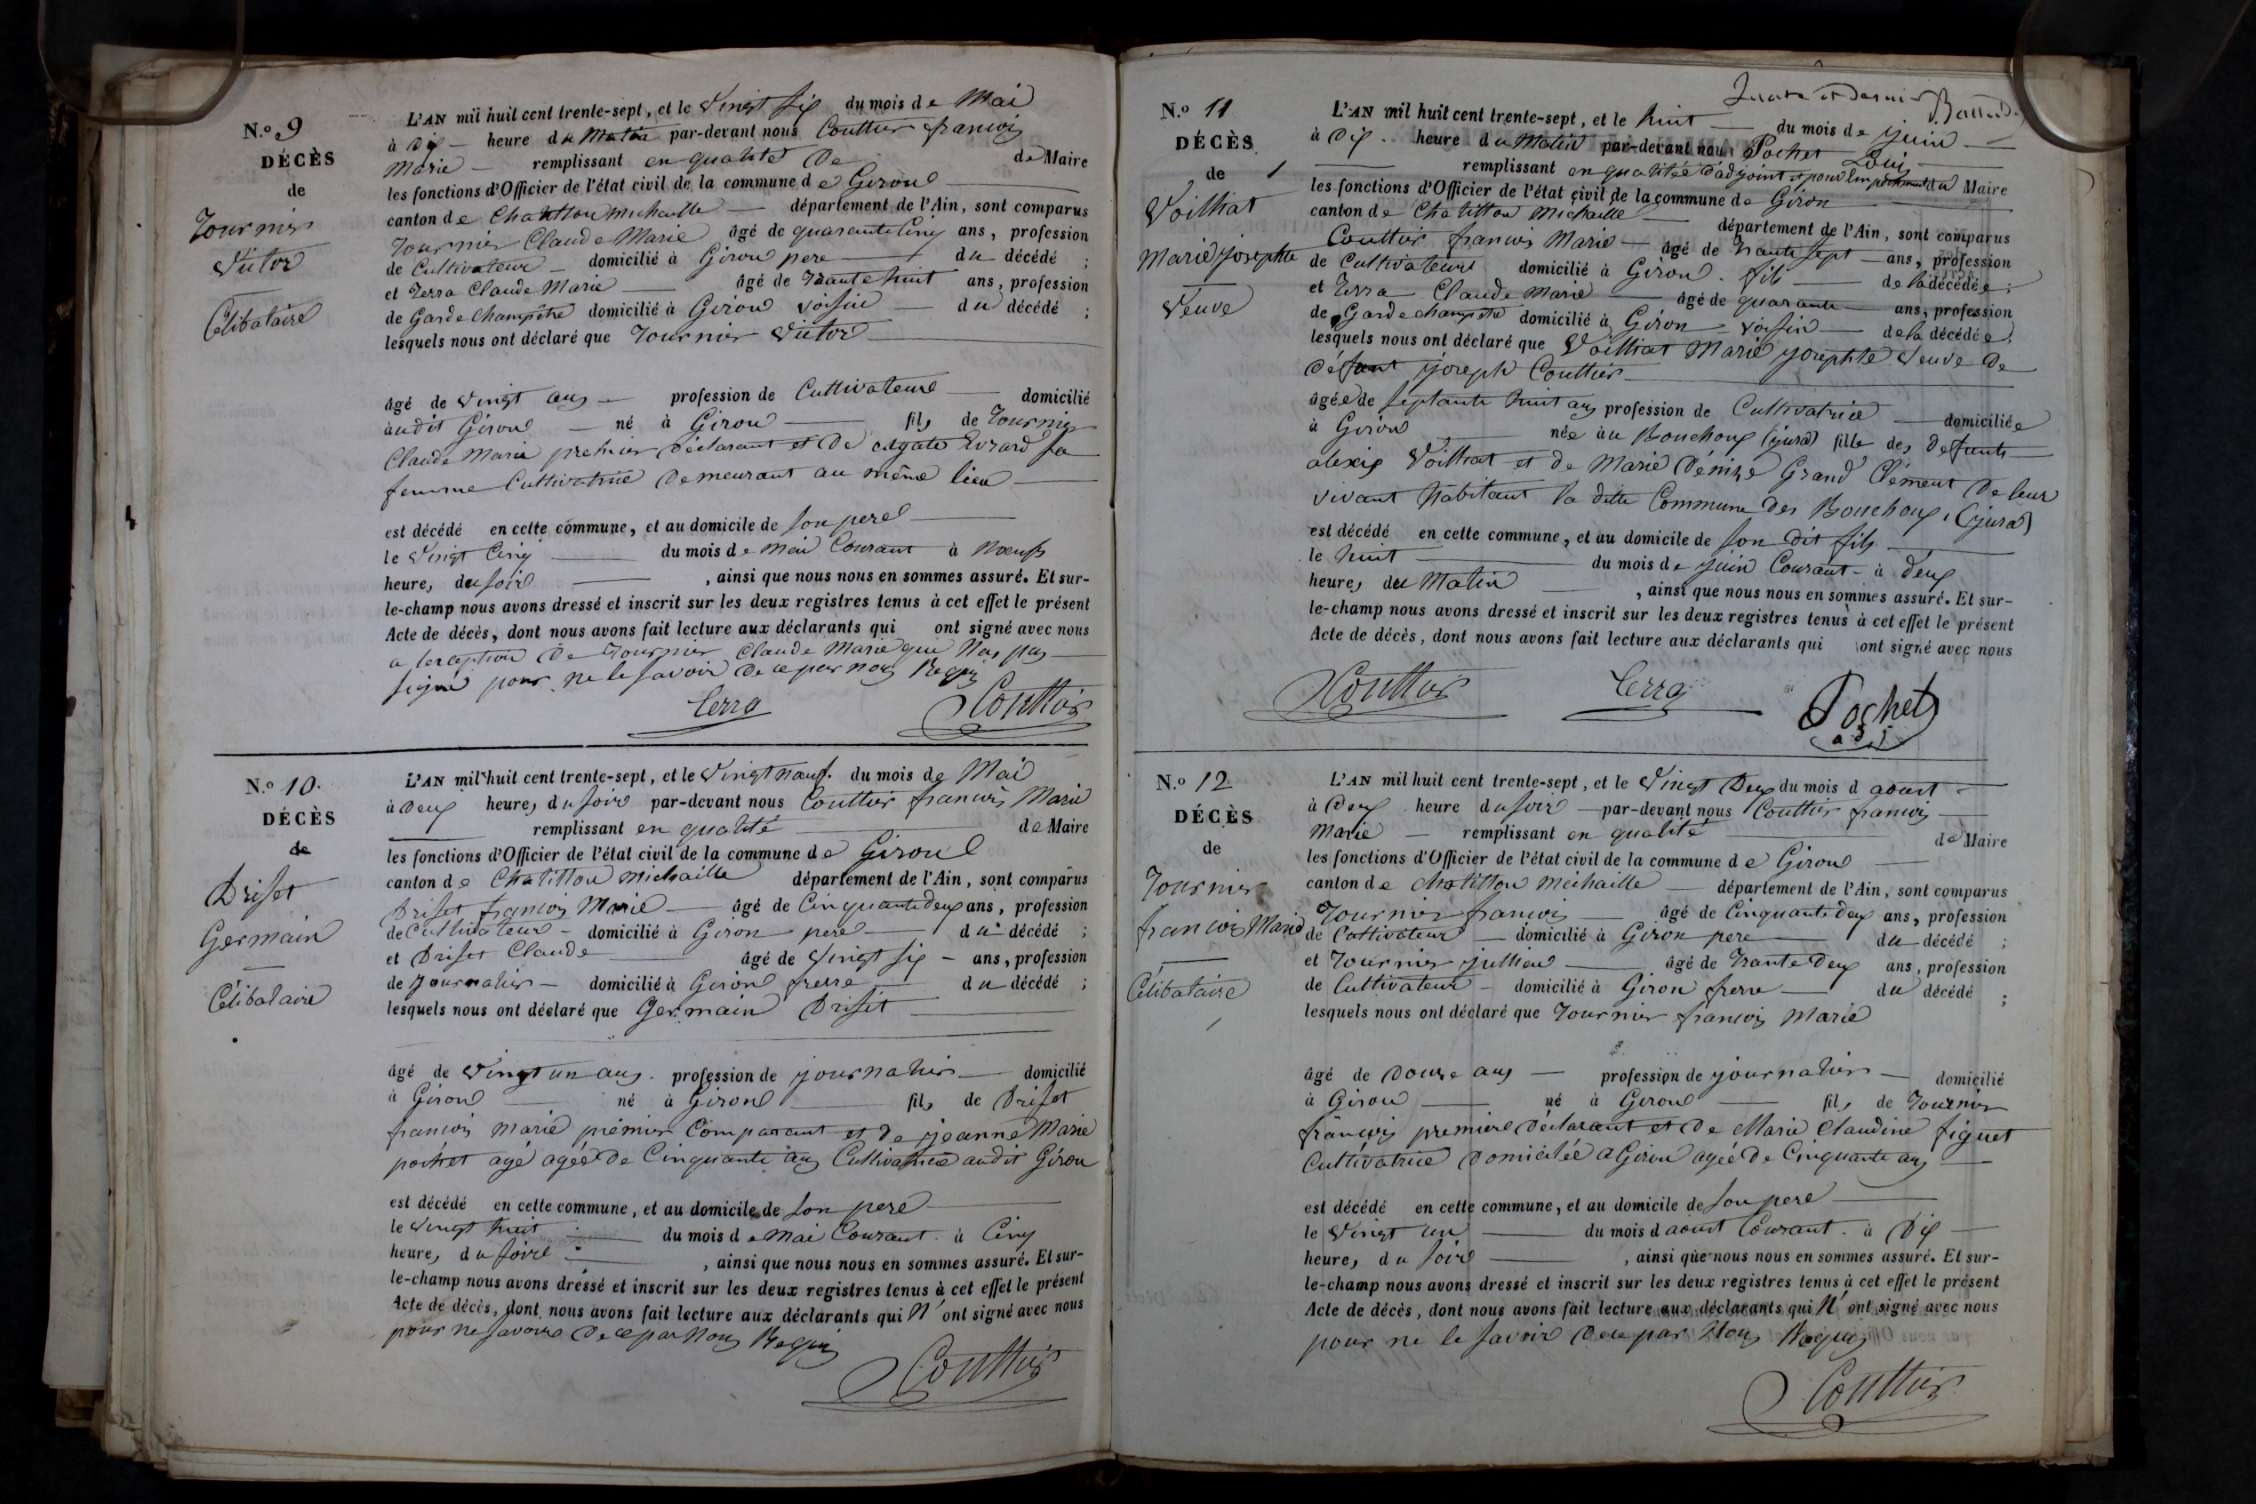 N.o 9
DÉCÈS
de
Tournier
Victor
Célibataire
L'AN mil huit cent trente-sept, et le Vingt six du mois de Mai
à dix heure du Matin par-devant nous Couttier francois
Marie remplissant en qualité De de Maire
les fonctions d'Officier de l'état civil de la commune de Giron
canton de Chatillon michaille département de l'Ain, sont comparus
Tournier Claude Marie âgé de quarante Cinq ans, profession
de Cultivateur domicilié à Giron pere du décédé ;
et Terra Claude Marie âgé de Trante huit ans, profession
de Garde Champêtre domicilié à Giron voisin du décédé ;
lesquels nous ont déclaré que Tournier Victor
âgé de vingt ans profession de Cultivateur domicilié
audit Giron né à Giron fils de Tournier
Claude Marie premier déclarant et De agate Evrard sa
femme Cultivatrice Demeurant au même lieu
est décédé en cette commune, et au domicile de son pere
le Vingt Cinq du mois de mai Courant à Noeufs
heure, du soire , ainsi que nous nous en sommes assuré. Et sur-
le-champ nous avons dressé et inscrit sur les deux registres tenus à cet effet le présent
Acte de décès, dont nous avons fait lecture aux déclarants qui ont signé avec nous
a lexception De Tournier Claude Marie que Nas pas
signé pour ne le savoir De ce par nous Requis
Terra Couttier
N.o 10.
DÉCÈS
de
Driset
Germain
Célibataire
L'AN mil huit cent trente-sept, et le Vingt nauf. du mois de Mai
à Deux heure, du soire par-devant nous Couttier francois Marie
remplissant en qualité de Maire
les fonctions d'Officier de l'état civil de la commune de Giron
canton de Chatillon michaille département de l'Ain, sont comparus
Driset francois Marie âgé de Cinquante deux ans, profession
de Cultivateur domicilié à Giron pere du décédé ;
et Driset Claude âgé de Vingt six ans, profession
de Journalier domicilié à Giron frerre du décédé ;
lesquels nous ont déclaré que Germain Driset
âgé de Vingt un ans. profession de journalier domicilié
à Giron né à Giron fils de Driset
francois marie premier Comparant et de jeanne Marie
pochet agé agée De Cinquante ans Cultivatrice audit Giron
est décédé en cette commune, et au domicile de son pere
le Vingt huit du mois de mai Courant à Cinq
heure, du soire , ainsi que nous nous en sommes assuré. Et sur-
le-champ nous avons dressé et inscrit sur les deux registres tenus à cet effet le présent
Acte de décès, dont nous avons fait lecture aux déclarants qui N'ont signé avec nous
pour ne savoire De ce par Nous Requis
Couttier
N.o 11
DÉCÈS
de
Voilliat
Marie josephte
Veuve
et dernier
L'AN mil huit cent trente-sept, et le huit du mois de juin
à dix heure du Matin par-devant nous Pochet Louis
remplissant en qualitée d'adjoint et pour du Maire
les fonctions d'Officier de l'état civil de la commune de Giron
canton de Chatillon michaille département de l'Ain, sont comparus
Couttier francois Marie âgé de Trante sept ans, profession
de Cultivateure domicilié à Giron. fils de la décédée ;
et Terra Claude Marie âgé de quarante ans, profession
de Garde champetre domicilié à Giron voisin de la décédée.
lesquels nous ont déclaré que Voilliat Marie josephte Veuve De
défunt joseph Couttier
âgée de septante huit ans profession de Cultivatrice domiciliée
à Giron née au Bouchoux (jura) fille des defunts
alexis Voilliat et de Marie Dénize Grand Clément De leur
vivant habitant la ditte Commune Des Bouchoux, (jura)
est décédé en cette commune, et au domicile de son dit fils
le huit du mois de juin Courant à deux
heure, du Matin , ainsi que nous nous en sommes assuré. Et sur-
le-champ nous avons dressé et inscrit sur les deux registres tenus à cet effet le présent
Acte de décès, dont nous avons fait lecture aux déclarants qui ont signé avec nous
Couttier Terra Pochet
adj
N.o 12
DÉCÈS
de
Tournier
francois Marie
Célibataire
L'AN mil huit cent trente-sept, et le Vingt Deux du mois d aoust
à Deux heure du soir par-devant nous Couttier francois
Marie remplissant en qualité de Maire
les fonctions d'Officier de l'état civil de la commune de Giron
canton de chatillon méchaille département de l'Ain, sont comparus
Tournier francois âgé de Cinquante deux ans, profession
de Cultivateur domicilié à Giron pere du décédé ;
et Tournier jullien âgé de Trante Deux ans, profession
de Cultivateur domicilié à Giron frerre du décédé ;
lesquels nous ont déclaré que Tournier francois Marie
âgé de Douze ans profession de journalier domicilié
à Giron né à Giron fils de Tournier
francois premiere déclarant et De Marie Claudine figuet
Cultivatrice Domicilée a Giron agée De Cinquante ans
est décédé en cette commune, et au domicile de son pere
le Vingt un du mois d aoust Courant. à Dix
heure, du soire , ainsi que nous nous en sommes assuré. Et sur-
le-champ nous avons dressé et inscrit sur les deux registres tenus à cet effet le présent
Acte de décès, dont nous avons fait lecture aux déclarants qui N'ont signé avec nous
pour ne le savoir De ce par Nous Requis
Couttier